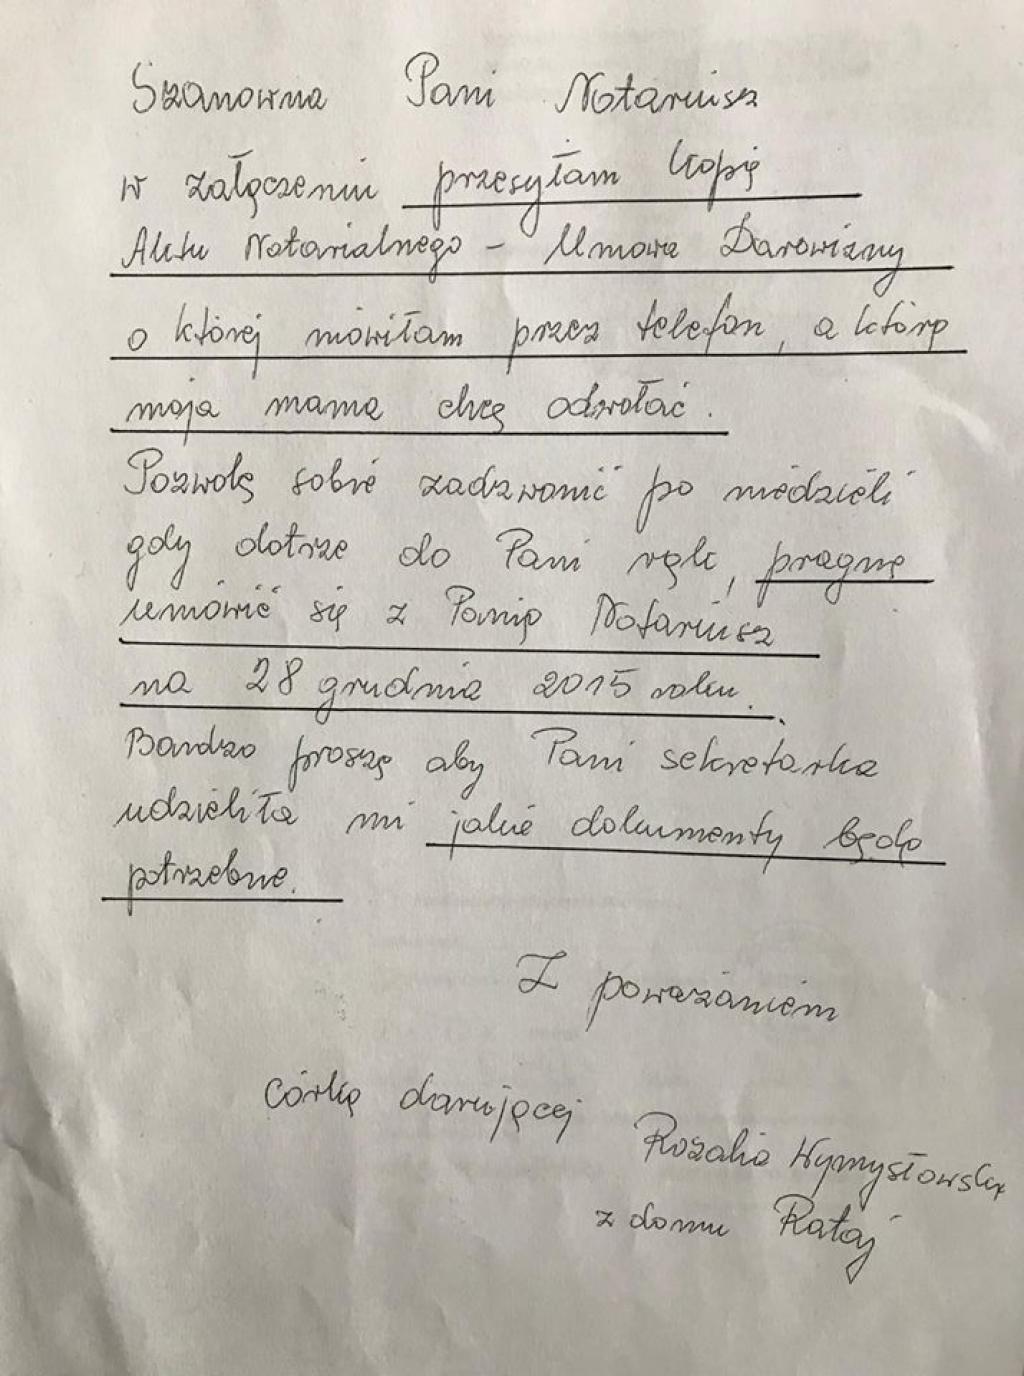 Szanowna Pani Notariusz
w załączeniu przesyłam kopię
Aktu Notarialnego - Umowa Darowizny
o której mówiłam przez telefon, a którą
moja mama chcę odwołać.
Pozwolę sobie zadzwonić po niedzieli
gdy dotrze do Pani rąk, pragnę
umówić się z Panią Notariusz
na 28 grudnia 2015 roku.
Bardzo proszę aby Pani sekretarka
udzieliła mi jakie dokumenty będą
potrzebne.
Z poważaniem
córkę darującej
Rozalia Wymysłowska
z domu Rataj